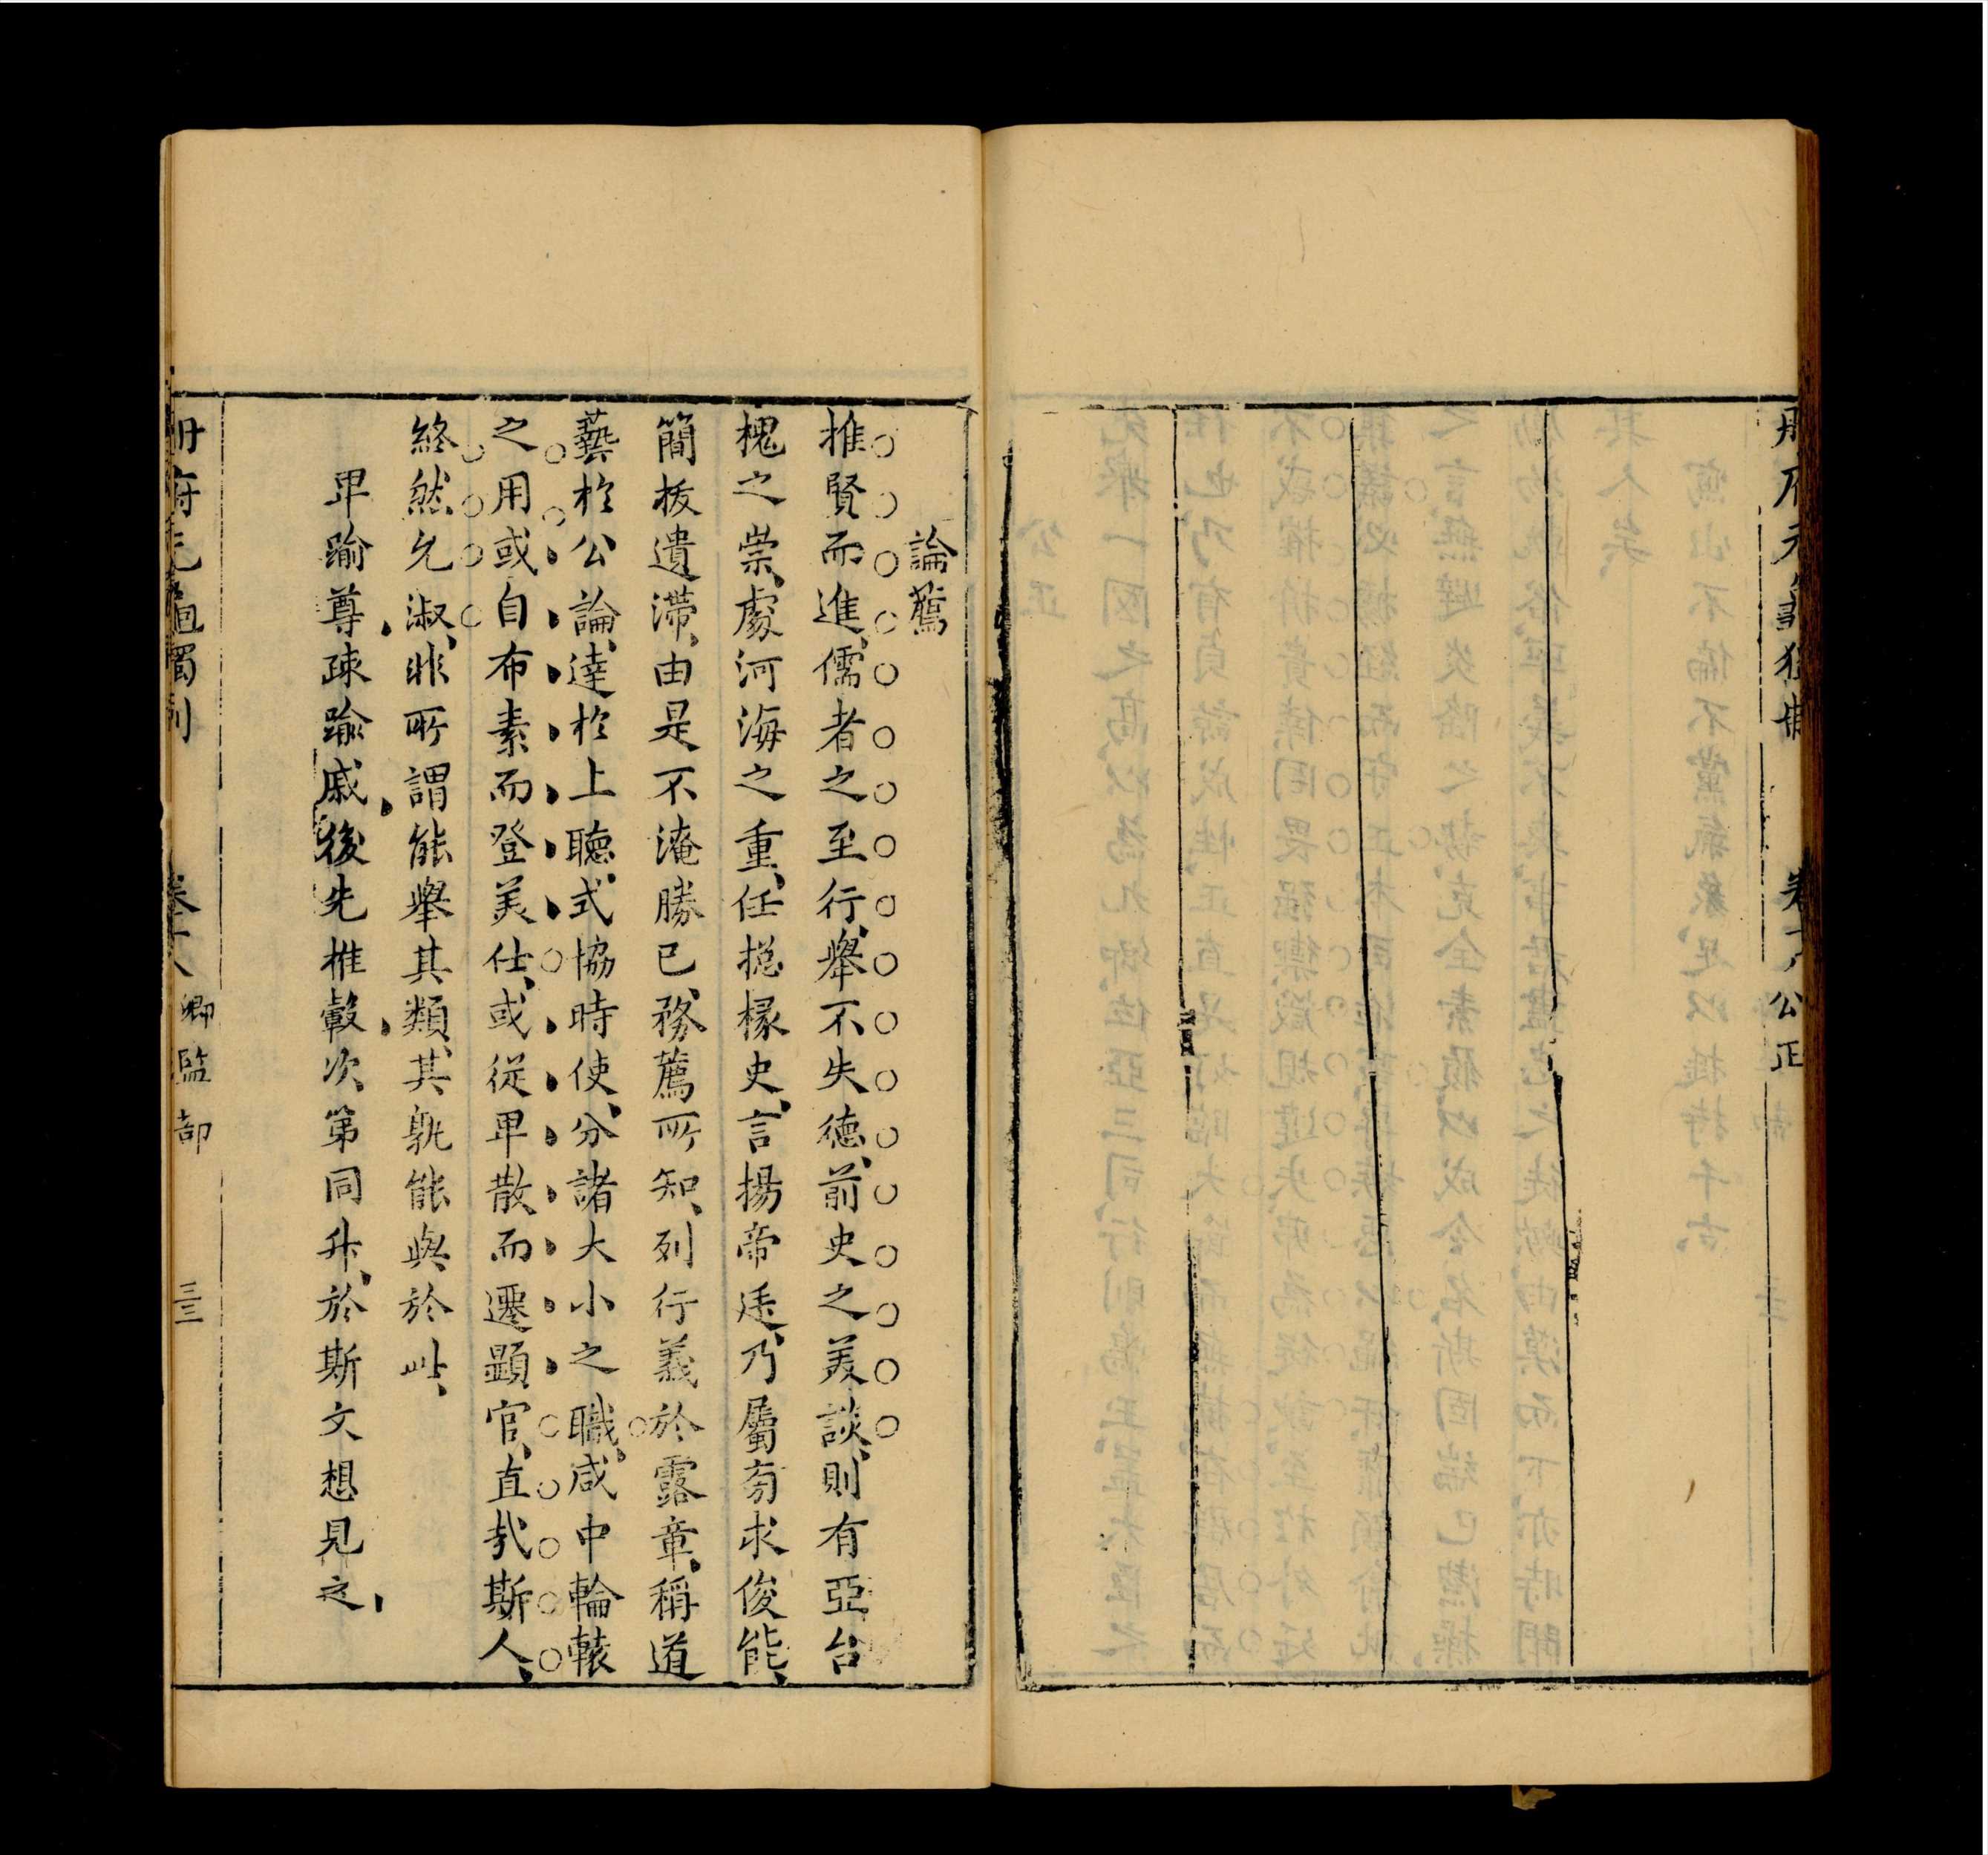 公正
論薦
推賢而進、儒者之至行、舉不失德、前史之美談、則有亞台
槐之崇、處河海之重、任揔椽史、言揚帝廷、乃屬旁求俊能、
簡拔遺滯、由是不淹勝已、務薦所知、列行義於露章、稱道
藝於公論、達於上聽、式協時使、分諸大小之職、咸中輪轅
之用或自布素而登美仕、或從卑散而遷顯官、直哉斯人、
終然允淑、非所謂能舉其類、其孰能與於此、
卑踰尊、疎踰戚、後先推轂、次第同升、於斯文想見之、
冊府元龜獨制
卷十八
卿監部
三三